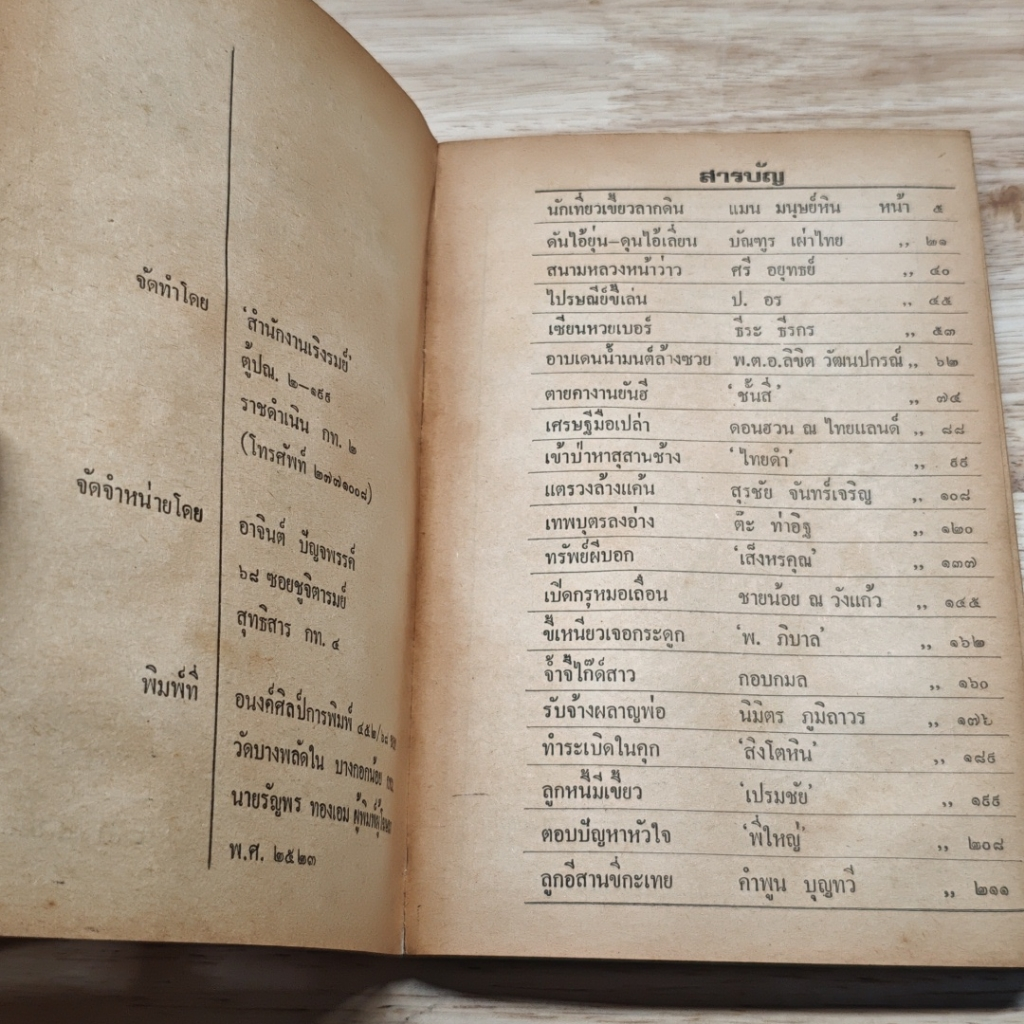 จัดทำโดย
'สำนักงานเริงรมย์'
ตู้ปณ. ๒–๑๙๙
ราชดำเนิน กท. ๒
(โทรศัพท์ ๒๗๗๑๐๐๘)
จัดจำหน่ายโดย
อาจินต์ ปัญจพรรค์
๖๘ ซอยชูจิตารมย์
สุทธิสาร กท. ๔
พิมพ์ที่
อนงค์ศิลป์การพิมพ์ ๔๕๒/๖๘
วัดบางพลัดใน บางกอกน้อย
นายรัญพร ทองเอม
พ.ศ. ๒๕๒๓
สารบัญ
นักเที่ยวเขี้ยวลากดิน แมน มนุษย์หิน หน้า ๕
ดันไอ้ยุ่น–ดุนไอ้เลี่ยน บัณฑูร เผ่าไทย ,, ๒๑
สนามหลวงหน้าว่าว ศรี อยุทธย์ ,, ๔๐
ไปรษณีย์ขี้เล่น ป. อร ,, ๔๕
เซียนหวยเบอร์ ธีระ ธีรกร ,, ๕๓
อาบเดนน้ำมนต์ล้างซวย พ.ต.อ.ลิขิต วัฒนปกรณ์ ,, ๖๒
ตายคางานยันฮี 'ชั้นสี่' ,, ๗๔
เศรษฐีมือเปล่า ดอนฮวน ณ ไทยแลนด์ ,, ๘๘
เข้าป่าหาสุสานช้าง 'ไทยดำ' ,, ๙๙
แตรวงล้างแค้น สุรชัย จันทร์เจริญ ,, ๑๐๘
เทพบุตรลงอ่าง ต๊ะ ท่าอิฐ ,, ๑๒๐
ทรัพย์ผีบอก 'เส็งหรคุณ' ,, ๑๓๗
เปิดกรุหมอเถื่อน ชายน้อย ณ วังแก้ว ,, ๑๔๕
ขี้เหนียวเจอกระดูก 'พ. ภิบาล' ,, ๑๖๒
จ้ำจี้ไก๊ด์สาว กอบกมล ,, ๑๖๐
รับจ้างผลาญพ่อ นิมิตร ภูมิถาวร ,, ๑๗๖
ทำระเบิดในคุก 'สิงโตหิน' ,, ๑๘๙
ลูกหนี้มีเขี้ยว 'เปรมชัย' ,, ๑๙๙
ตอบปัญหาหัวใจ 'พี่ใหญ่' ,, ๒๐๘
ลูกอีสานขี่กะเทย คำพูน บุญทวี ,, ๒๑๑